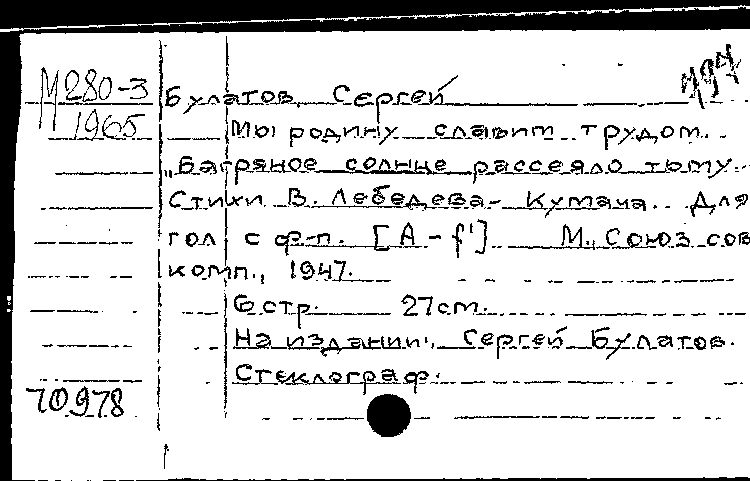 М280-3
1965
Булатов, Сергей
Мы родину славит трудом.
"Багряное солнце рассеяло тьму.
Стихи В. Лебедева-Кумача. Для
гол. с ф-п. [А - f'] М., Союз сов
комп., 1947.
6 стр. 27 см.
На издании: Сергей Булатов.
Стеклограф.
70978